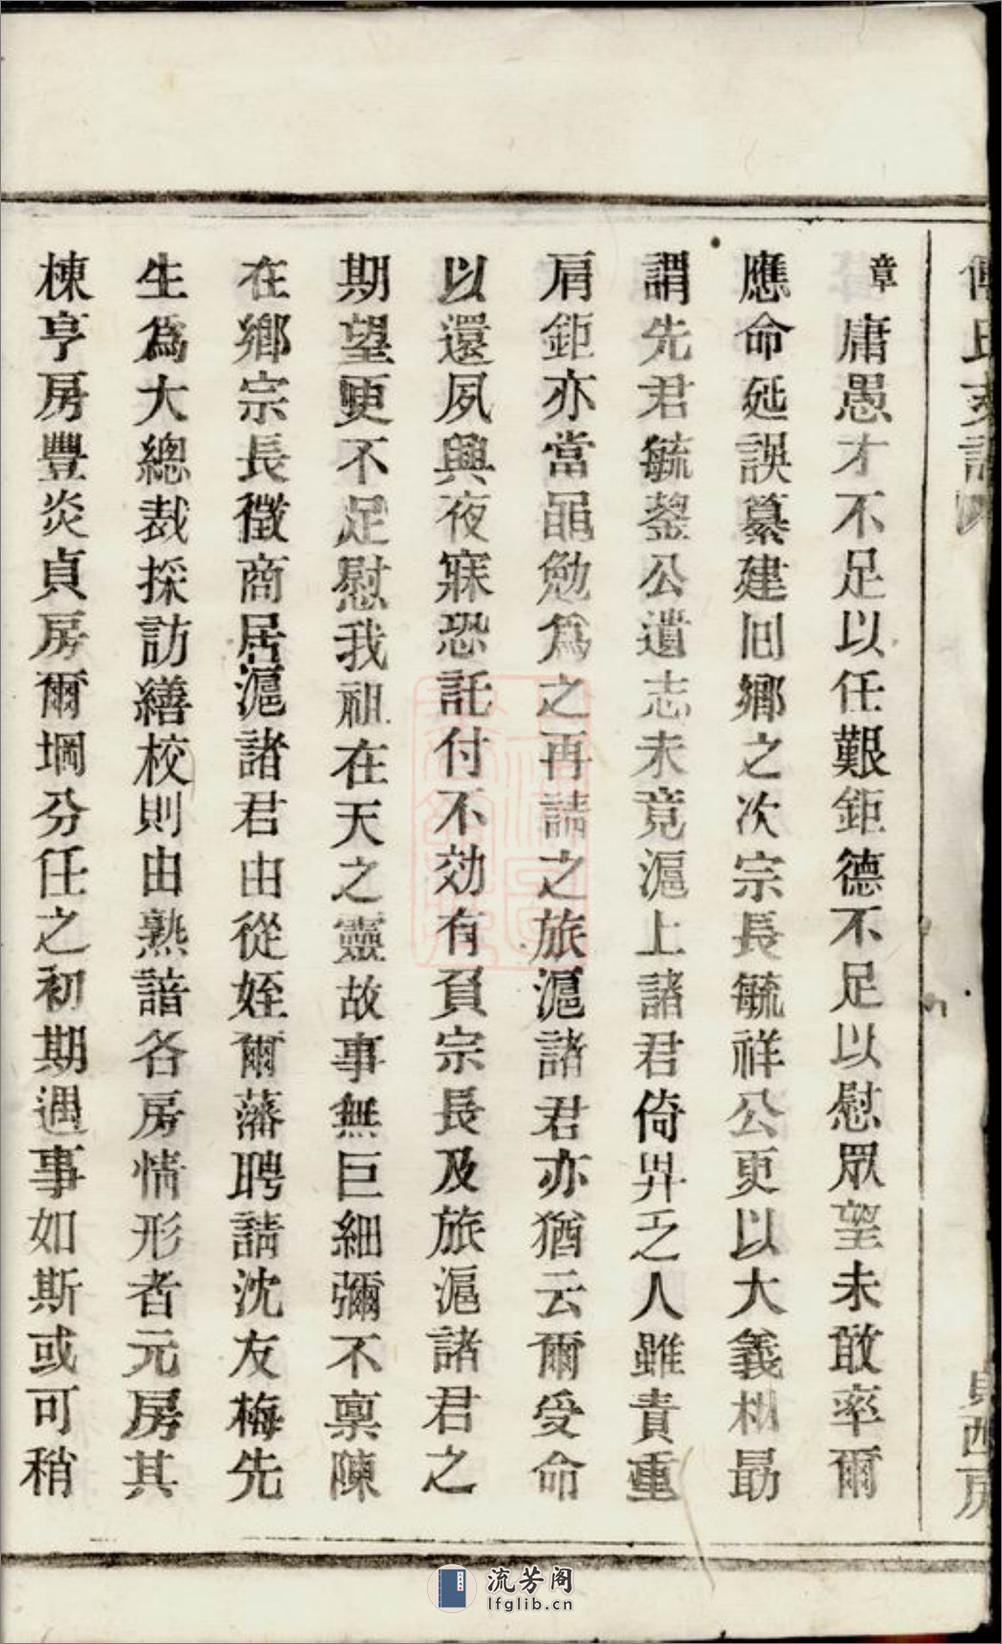 章庸愚才不足以任艱鉅德不足以慰眾望未敢率爾
應命延誤纂建回鄉之次宗長毓祥公更以大義相勗
謂先君毓鋆公遺志未竟滬上諸君倚畀乏人雖責重
肩鉅亦當黽勉為之再請之旅滬諸君亦猶云爾受命
以還夙興夜寐恐託付不効有負宗長及旅滬諸君之
期望更不足慰我祖在天之靈故事無巨細彌不稟陳
在鄉宗長徵商居滬諸君由從姪爾藩聘請沈友梅先
生為大總裁採訪繕校則由熟諳各房情形者元房其
棟亨房豐炎貞房爾堈分任之初期遇事如斯或可稍
貞西房
流芳阁
lfglib.cn